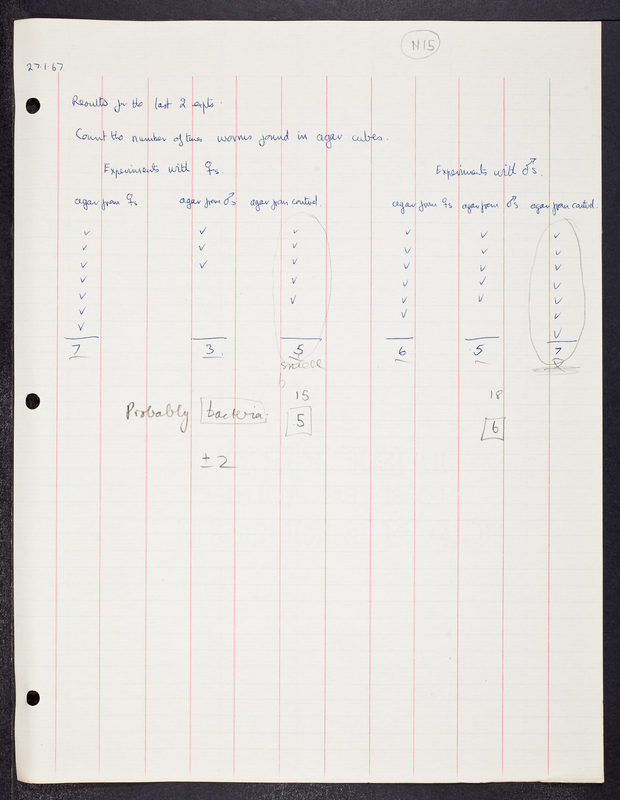 N15
27.1.67
Results for the last 2 expts.
Count the number of times worms found in agar cubes.
Experiments with ♀s. Experiments with ♂s.
agar from ♀s agar from ♂s agar from control. agar from ♀s agar from ♂s agar from control.
✓ ✓ ✓ ✓ ✓ ✓
✓ ✓ ✓ ✓ ✓ ✓
✓ ✓ ✓ ✓ ✓ ✓
✓ ✓ ✓ ✓ ✓
✓ ✓ ✓ ✓ ✓
✓ ✓ ✓
✓ ✓
7 3. 5 6 5 7
15 18
Probably bacteria. 5 6
± 2